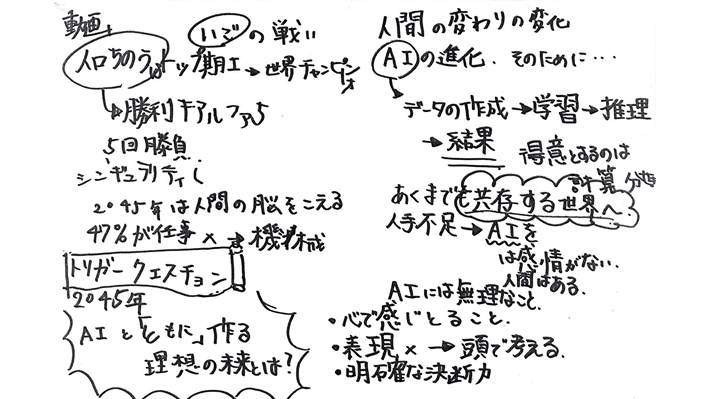 動画
いごの戦い
人口ちのう トップ期I→世界チャンピオン
→勝利 アルファ5
5回勝負
シンギュラリティ
2045年は人間の脳をこえる
47%が仕事×→機械
トリガークェスチョン
2045年
AIと「ともに」作る
理想の未来とは?
人間の変わりの変化
AIの進化. そのために…
データの作成→学習→推理
→結果
得意とするのは
計算 分
あくまでも共存する世界へ.
人手不足→AIを
は感情がない.
人間はある.
AIには無理なこと.
・心で感じとること.
・表現×→頭で考える.
・明確な決断力